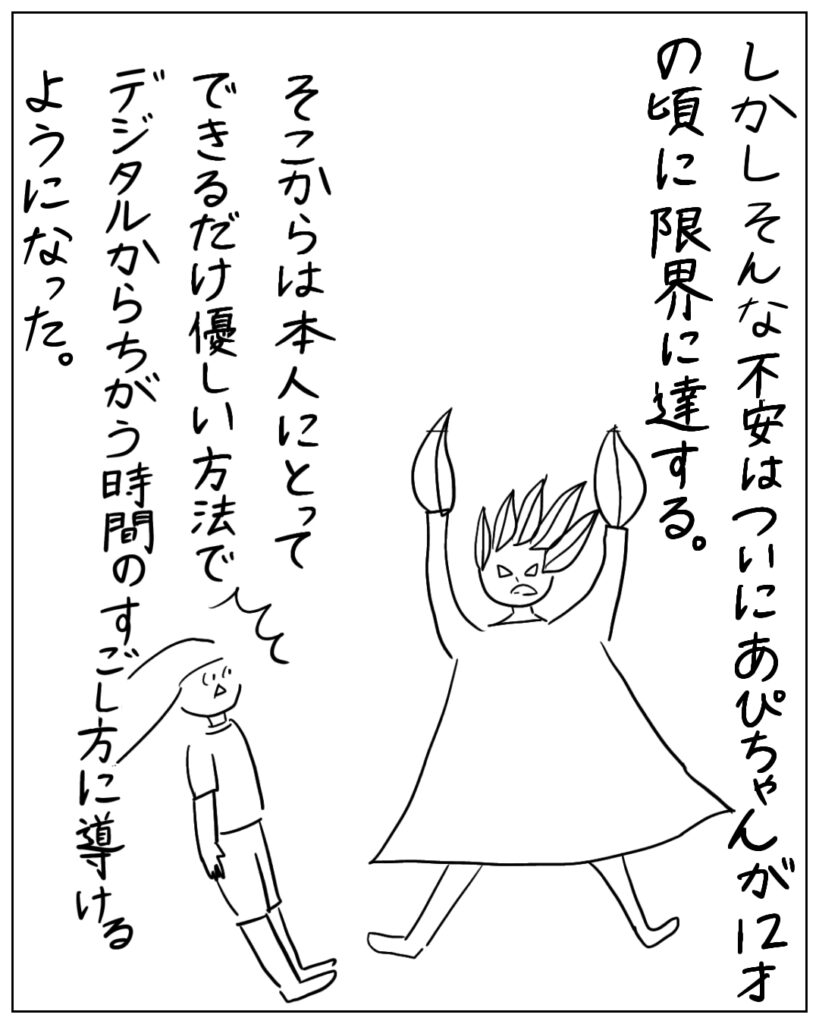 しかしそんな不安はついにあぴちゃんが12才
の頃に限界に達する。
そこからは本人にとって
できるだけ優しい方法で
デジタルからちがう時間のすごし方に導ける
ようになった。